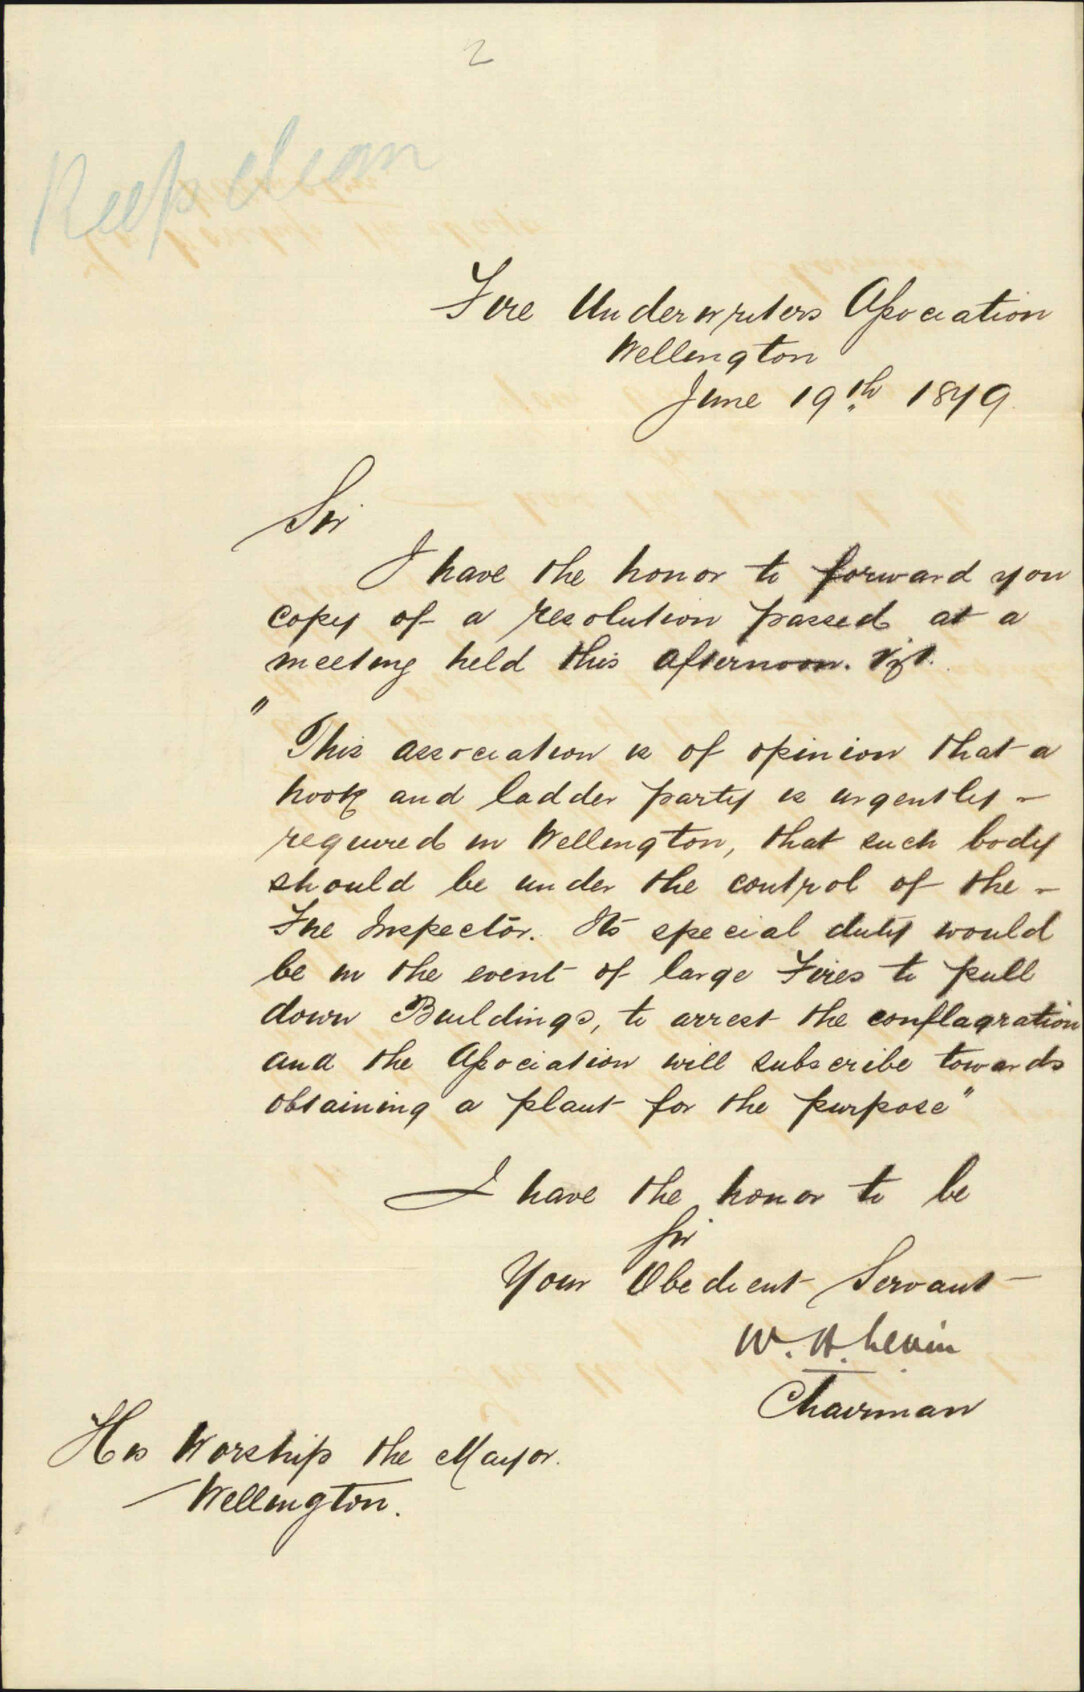 2
Keep clean
Fire Underwriters Association
Wellington
June 19th 1879.
Sir
I have the honor to forward you
copy of a resolution passed at a
meeting held this afternoon. Vizt.
"This association is of opinion that a
hook and ladder party is urgently -
required in Wellington, that such body
should be under the control of the -
Fire Inspector. Its special duty would
be in the event of large Fires to pull
down Buildings, to arrest the conflagration
and the Association will subscribe towards
obtaining a plant for the purpose"
I have the honor to be
Sir
Your Obedient Servant
W. H. Levin
Chairman
His Worship the Mayor.
Wellington.